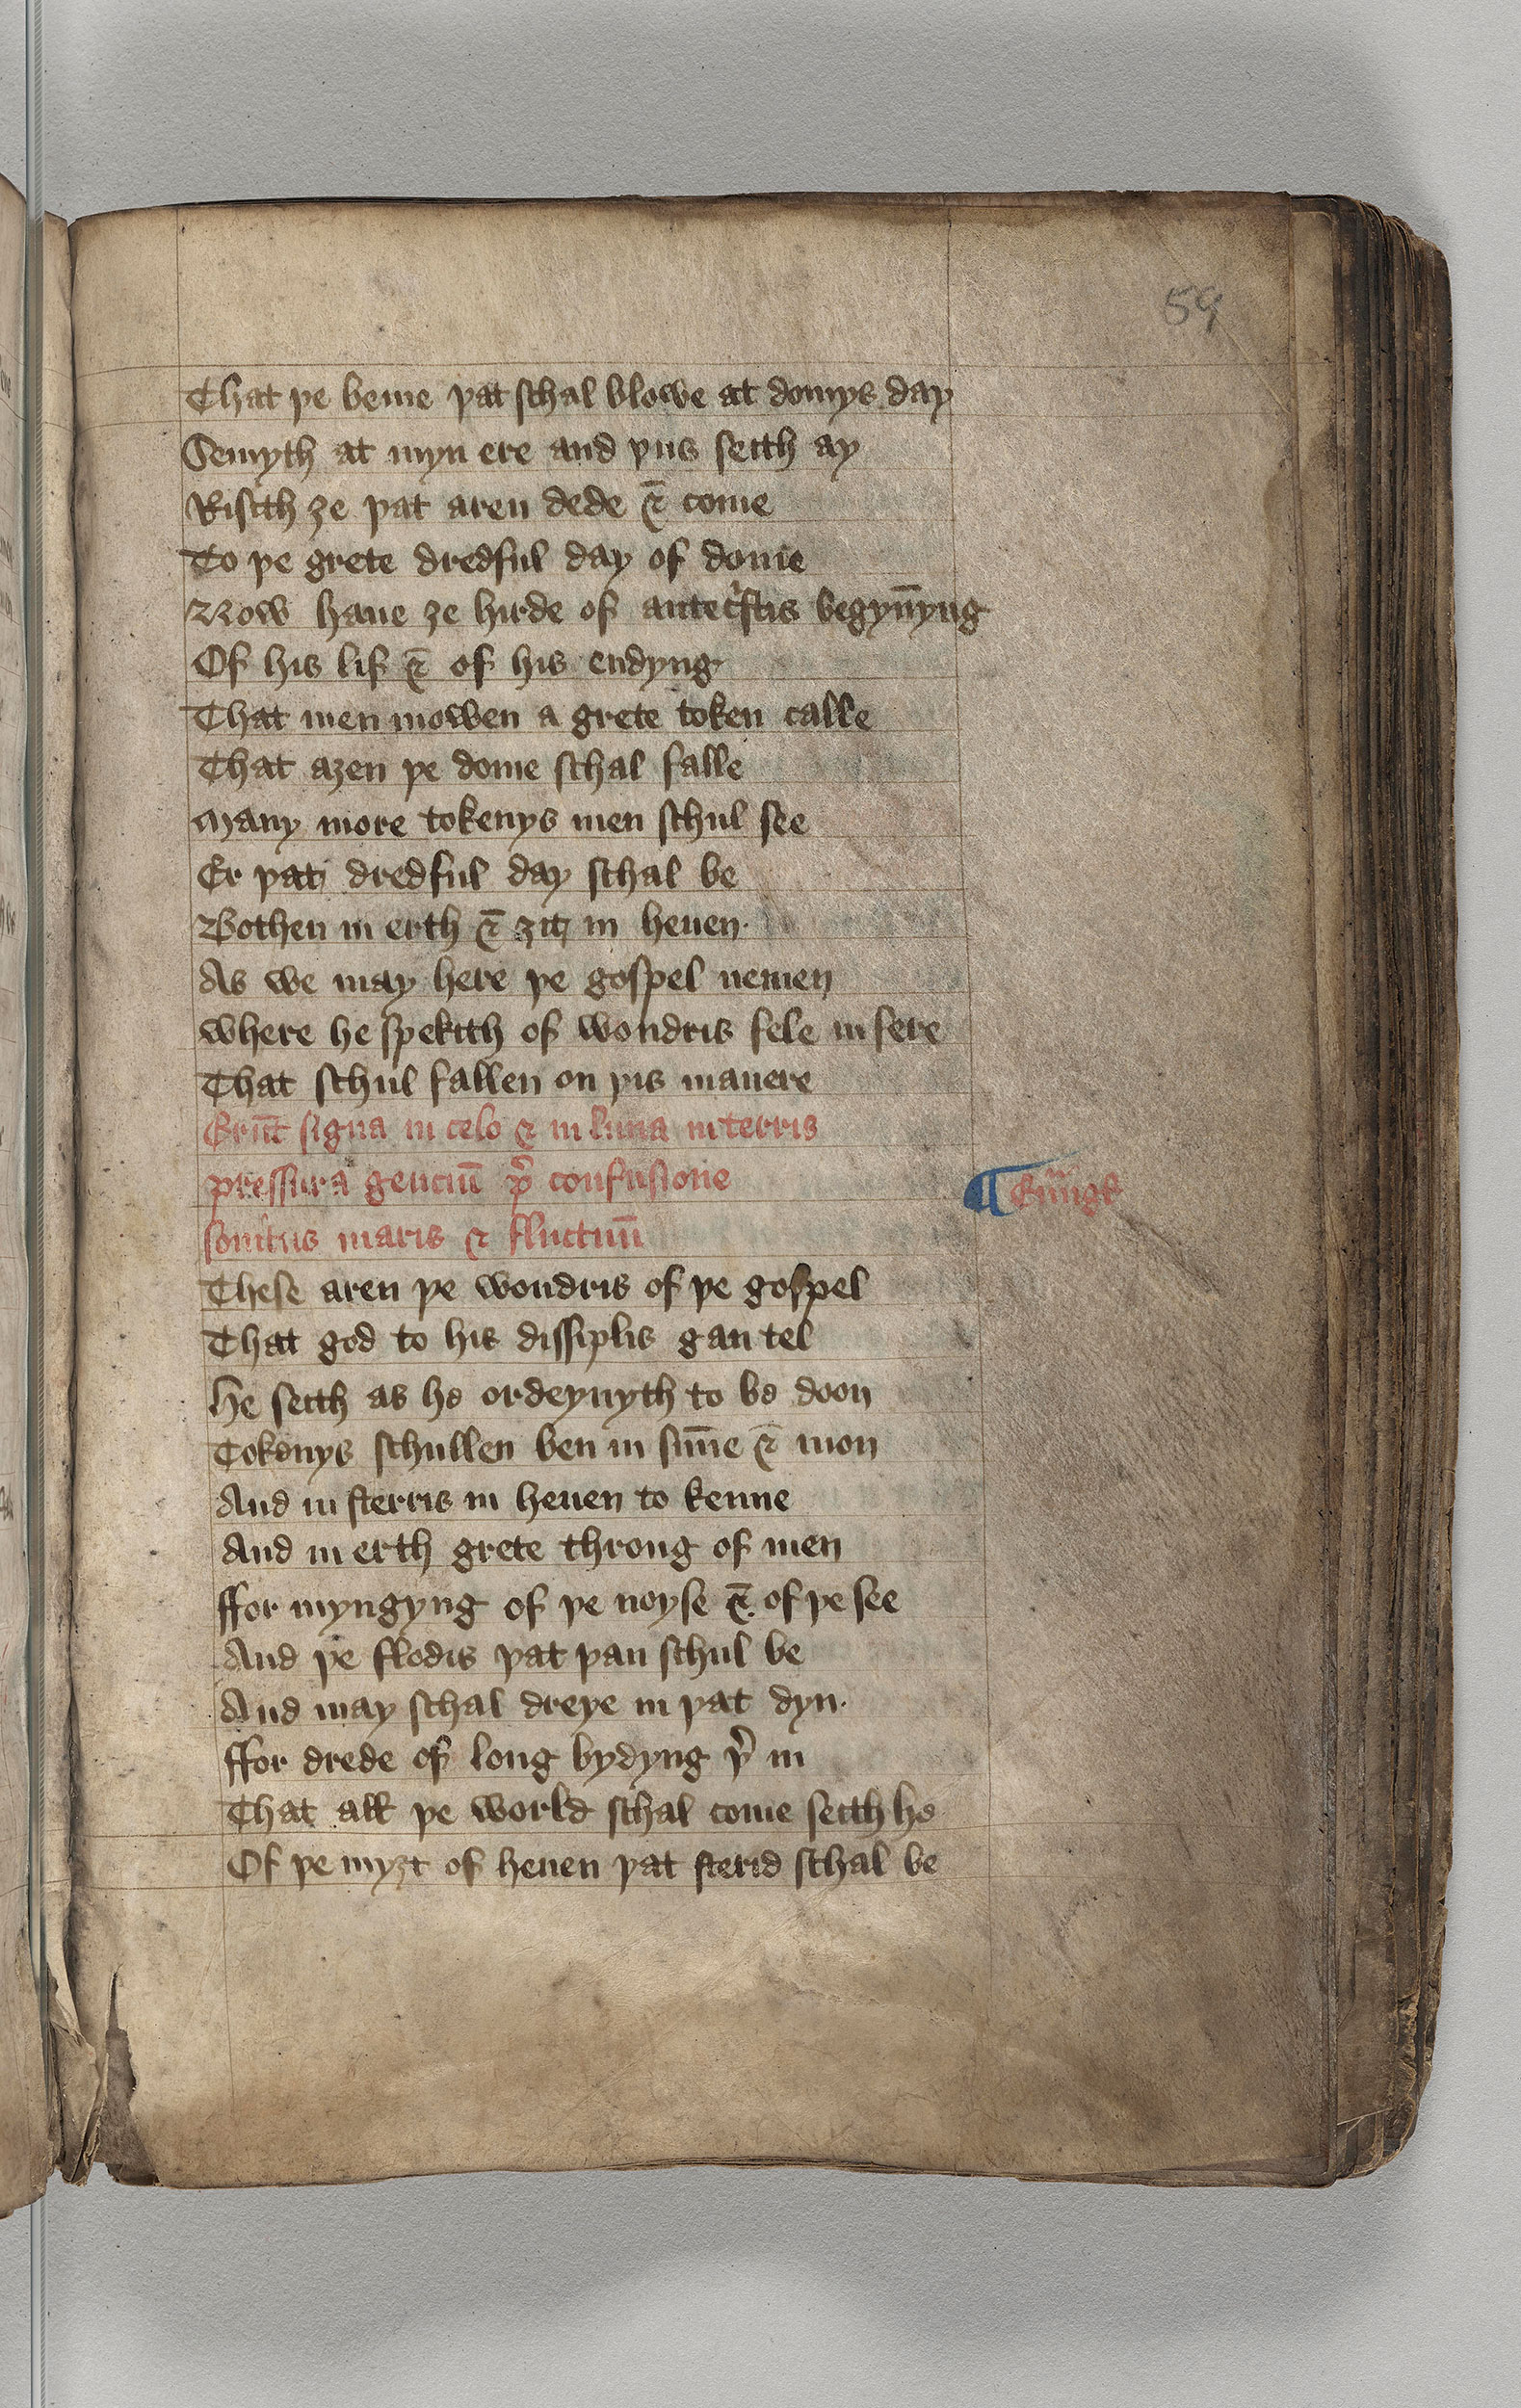 59
That þe beme þat schal blowe at domys day
Semyth at myn ere and þus seith ay
Risith ȝe þat aren dede ⁊ come
To þe grete dredful day of dome
Now haue ȝe hirde of antec̾stis begyn̄yng
Of his lif ⁊ of his endyng
That men mowen a grete token calle
That aȝen þe dome schal falle
Many more tokenys men schul see
Er þat dredful day schal be
Bothen in erth ⁊ ȝit in heuen.
As we may here þe gospel nemen
where he spekith of wondris fele in fere
That schul fallen on þis manere
Erūt signa in celo ⁊ in luna in terris
pressura genciū p̾ confusione
sonitus maris ⁊ fluctuū
¶
These aren þe wondris of þe gospel
That god to his dissiplis gan tel
He seith as he ordeynyth to be doon
Tokenys schullen ben in sūne ⁊ mon
And in sterris in heuen to kenne
And in erth grete throng of men
ffor myngyng of þe noyse ⁊ of þe see
And þe flodis þat þan schul be
And may schal dreye in þat dyn.
ffor drede of long bydyng þ̾ in
That all þe world schal come seith he
Of þe myȝt of heuen þat sterid schal be